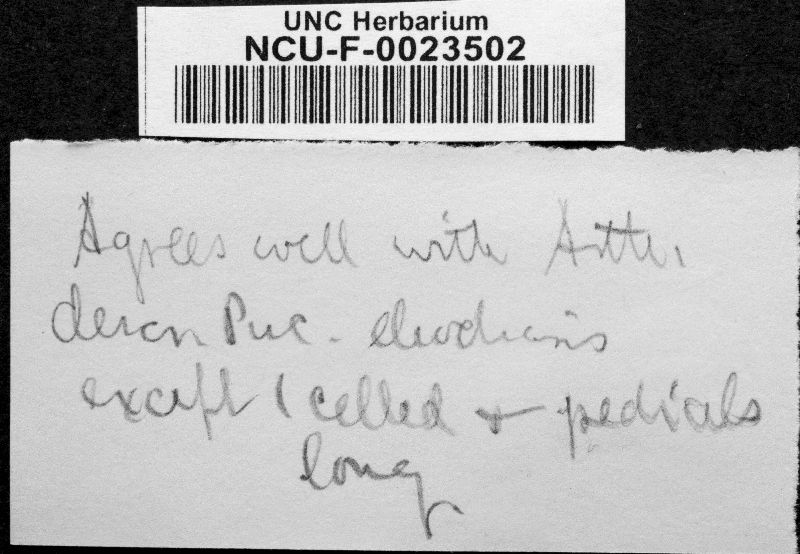 UNC Herbarium
NCU-F-0023502
Agrees well with Arth.
descr Puc. eleocharis
except 1 celled & pedicels
long